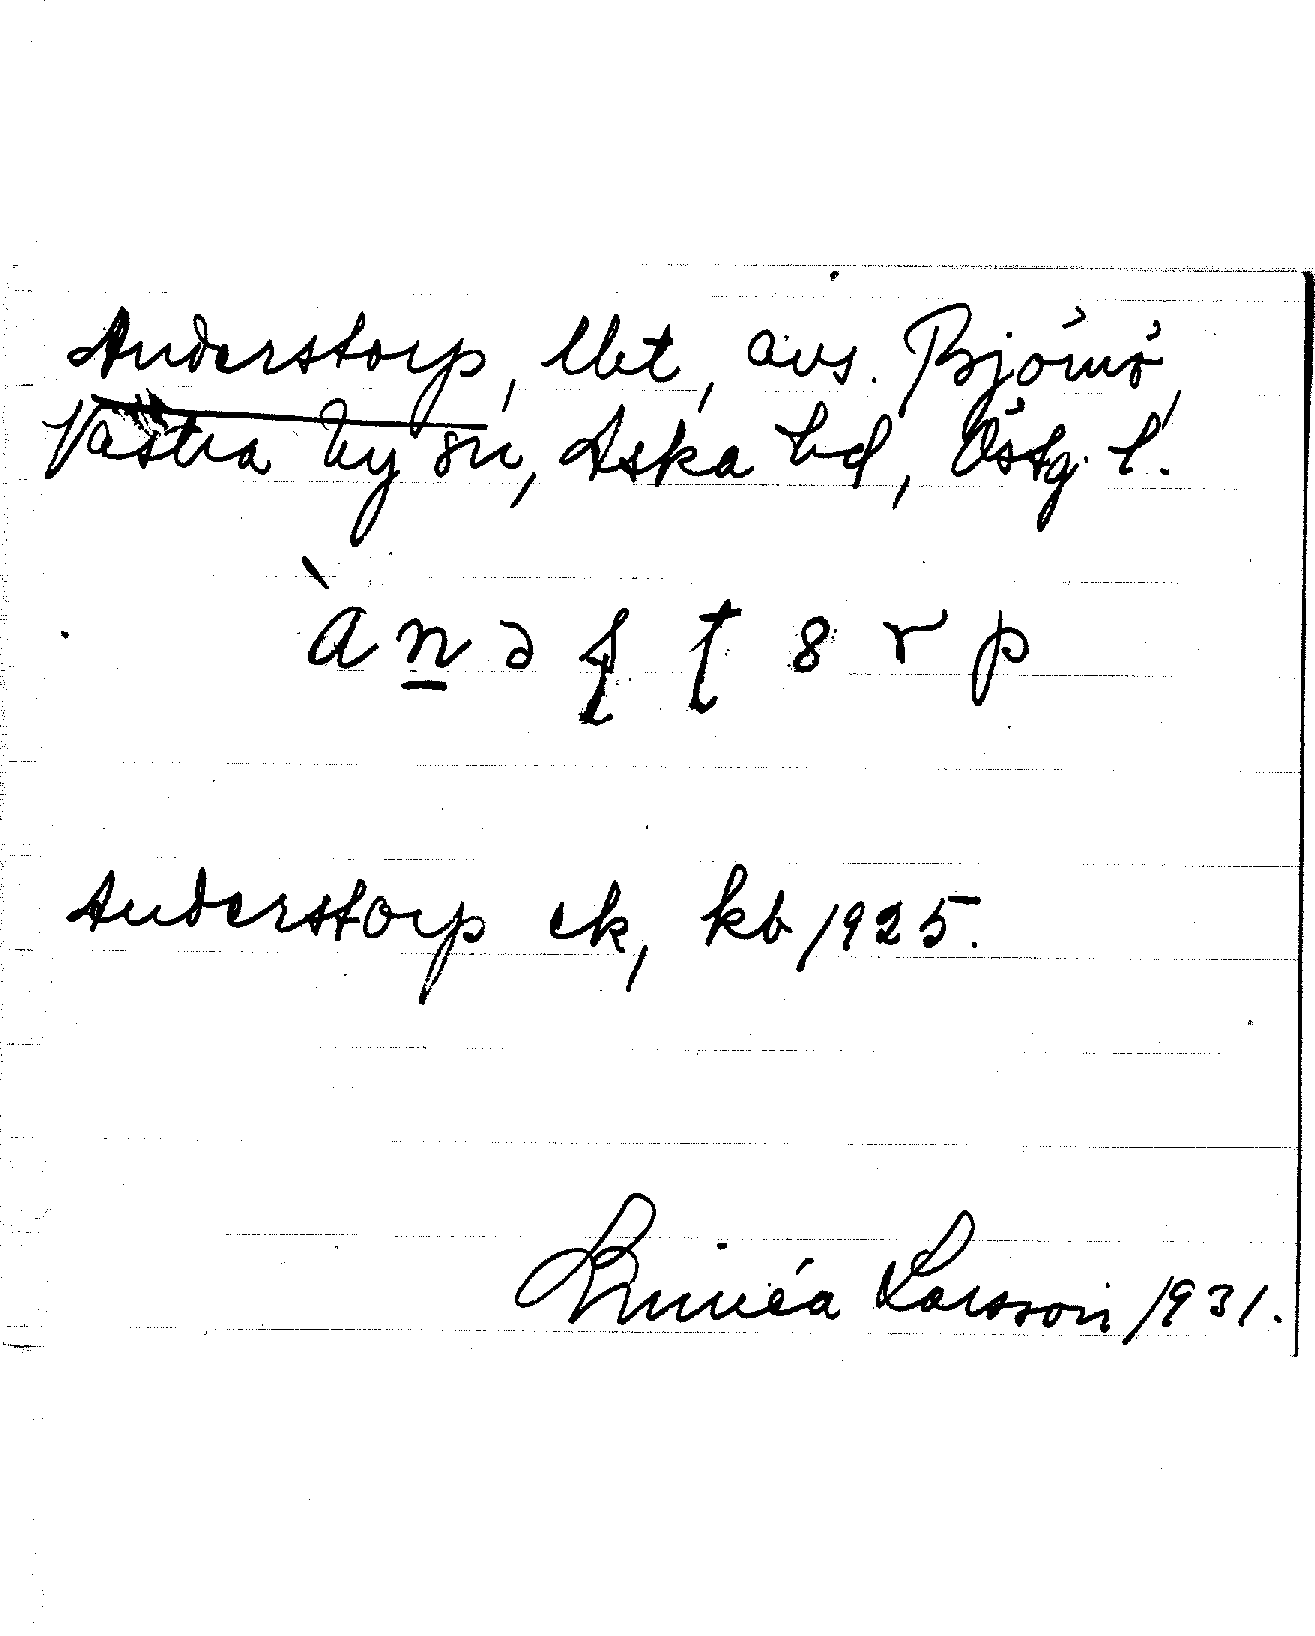 Anderstorp, lht, avs. Björnö,
Västra Ny sn, Aska hd, Östg. l.
ànəʂʈ8rp
Anderstorp ek, kb 1925.
Linnéa Larsson 1931.